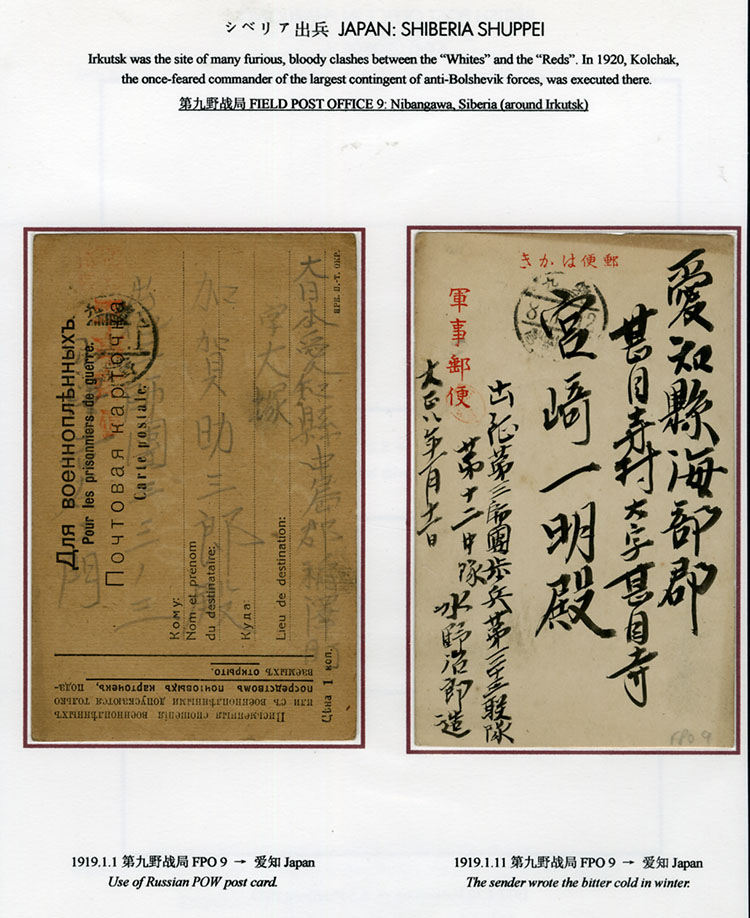 シベリア出兵 JAPAN: SHIBERIA SHUPPEI
Irkutsk was the site of many furious, bloody clashes between the “Whites” and the “Reds”. In 1920, Kolchak,
the once-feared commander of the largest contingent of anti-Bolshevik forces, was executed there.
第九野战局 FIELD POST OFFICE 9: Nibangawa, Siberia (around Irkutsk)
Для военноплѣнныхъ.
Pour les prisonniers de guerre.
Почтовая карточка
Carte postale.
Кому:
Nom et prénom
du destinataire:
Куда:
Lieu de destination:
Письменныя сношенія военноплѣнныхъ
или съ военноплѣнными допускаются только
посредствомъ почтовыхъ карточекъ, пода-
ваемыхъ открыто.
Цѣна 1 коп.
大日本愛知縣
字大塚
加賀助三郎殿
郵便はかき
軍事郵便
愛知縣海部郡
甚目寺村大字甚目寺
宮﨑一明殿
出征第三師團歩兵第三十三聯隊
第十二中隊
水野治郎造
大正八年一月十一日
FPO 9
1919.1.1 第九野战局 FPO 9 → 爱知 Japan
Use of Russian POW post card.
1919.1.11 第九野战局 FPO 9 → 爱知 Japan
The sender wrote the bitter cold in winter.